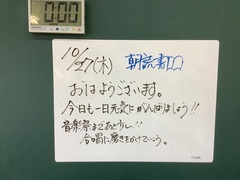 0:00
10/27(木) 朝読書
おはようございます。
今日も一日元気にがんばりましょう!!
音楽祭まであと少し!!
合唱に磨きをかけていこう。